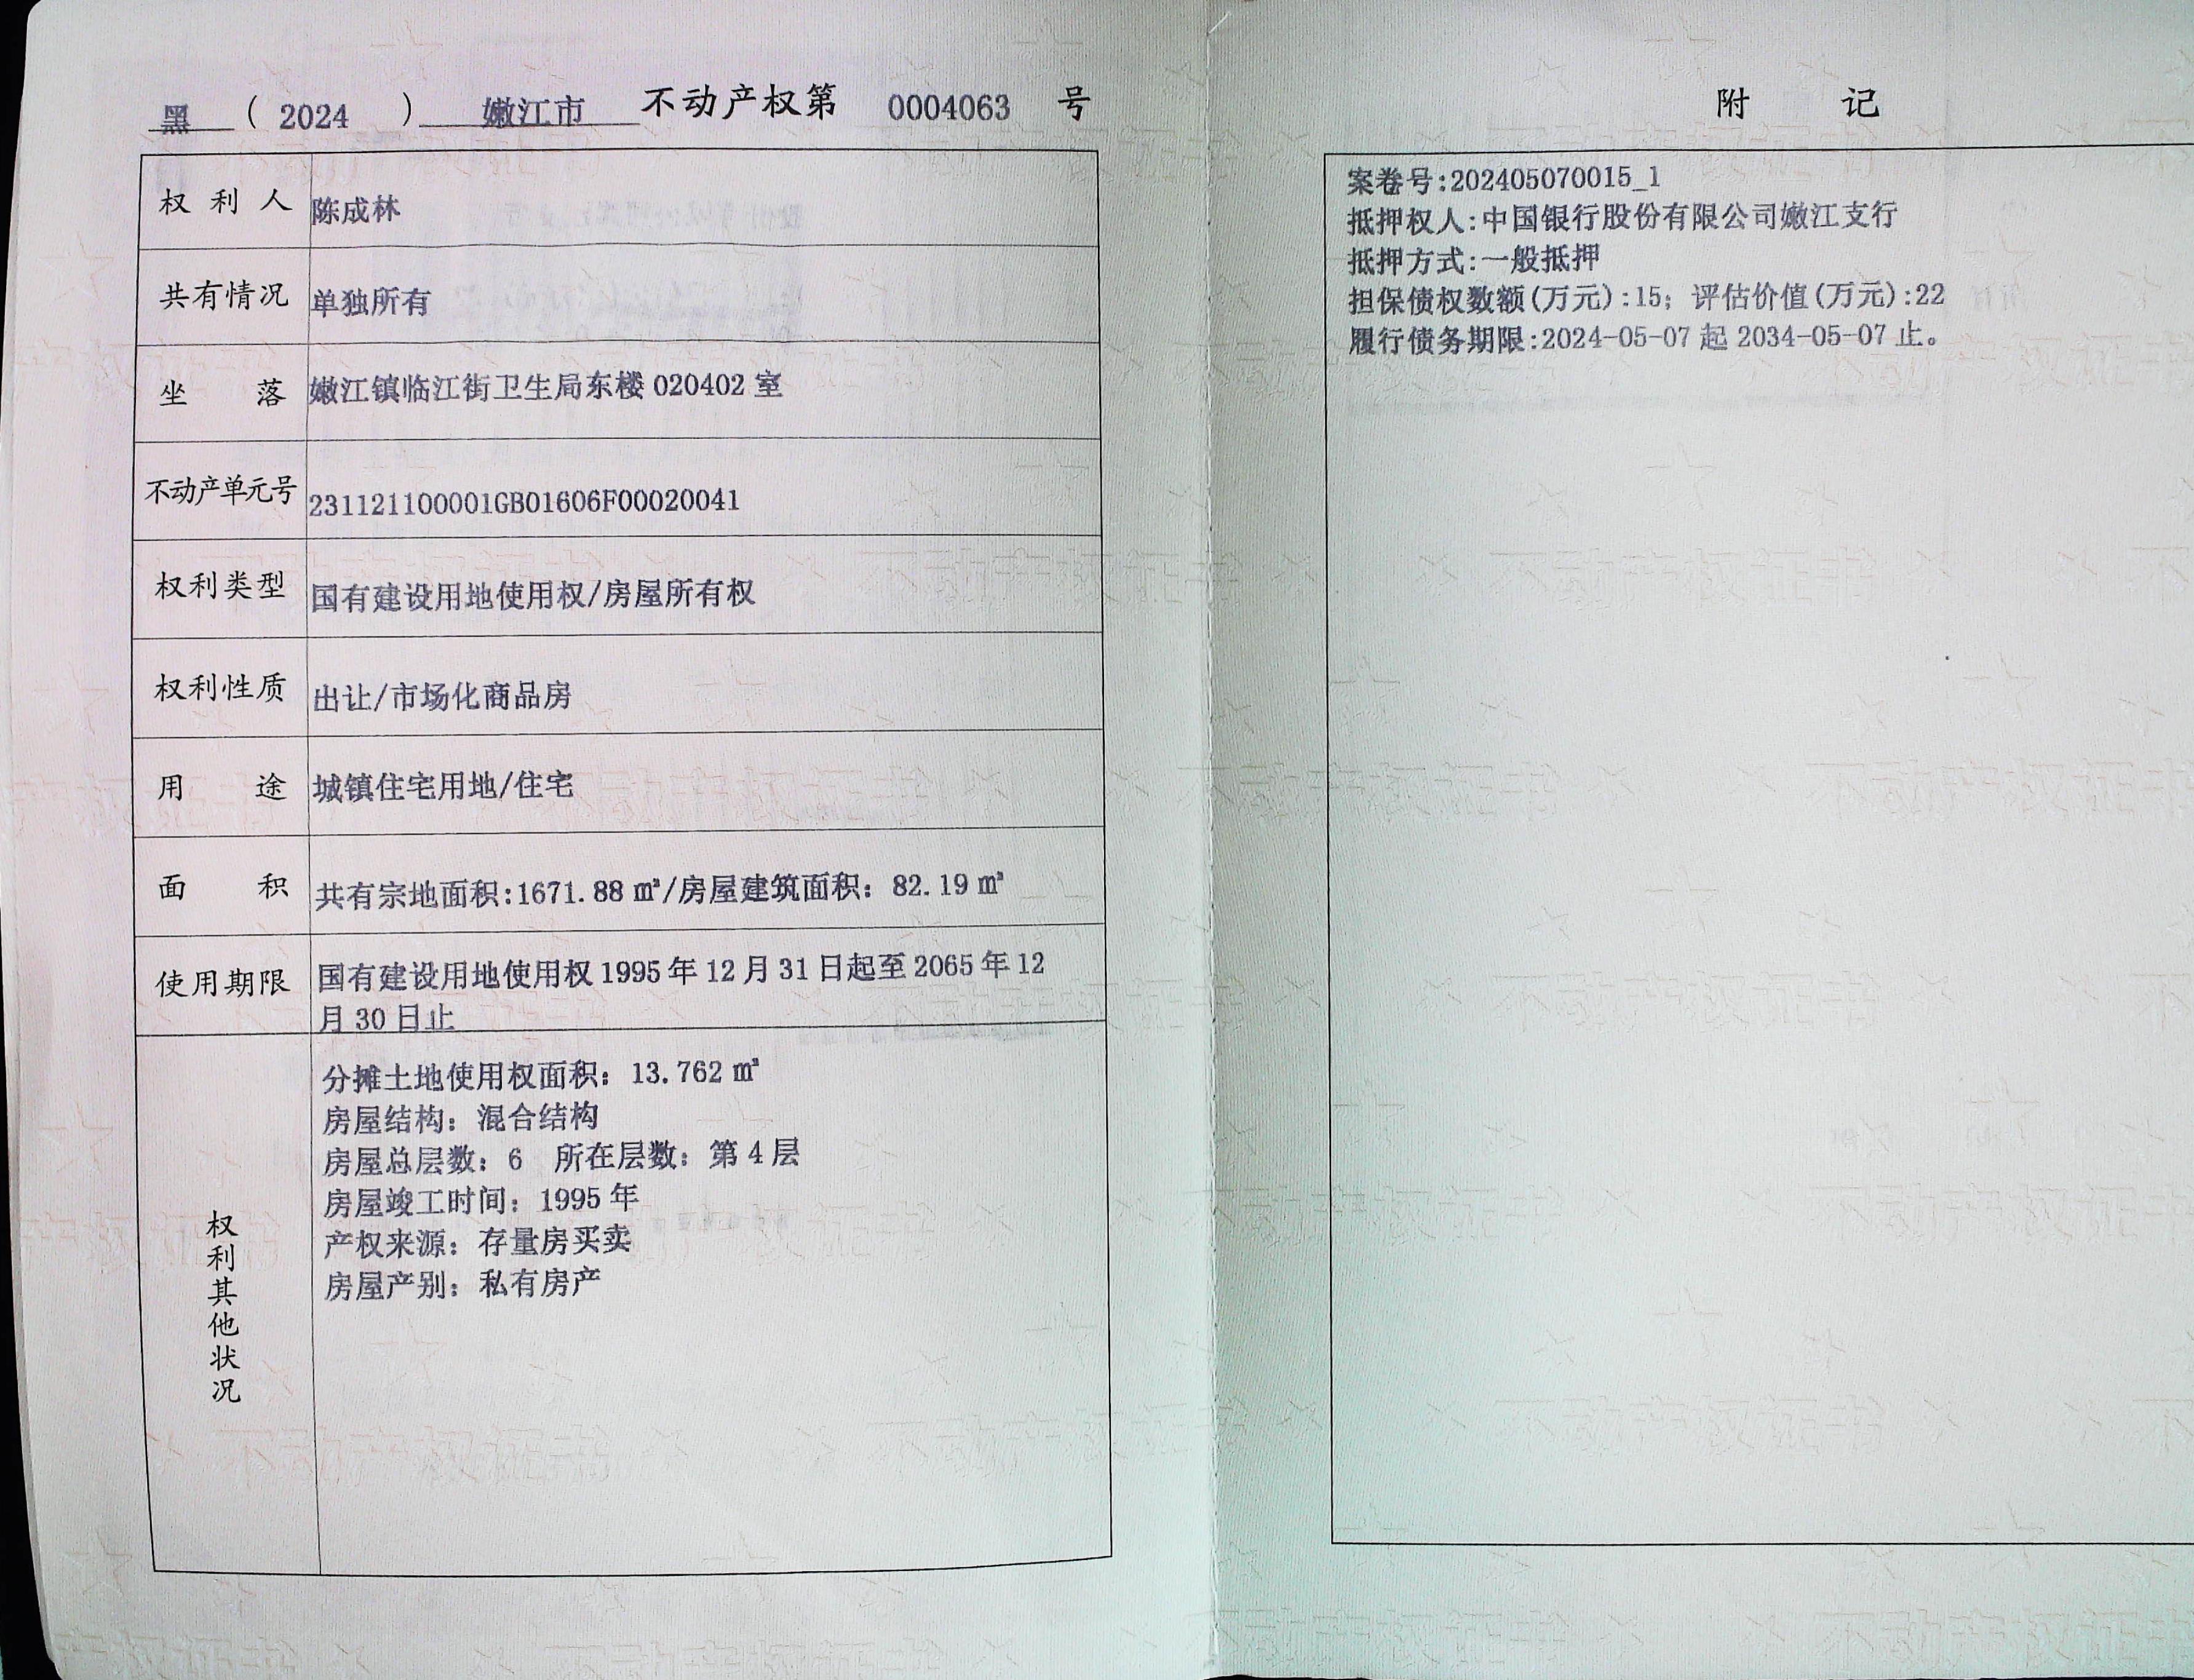 黑 ( 2024 ) 嫩江市 不动产权第 0004063 号
权利人 陈成林
共有情况 单独所有
坐落 嫩江镇临江街卫生局东楼 020402 室
不动产单元号 231121100001GB01606F00020041
权利类型 国有建设用地使用权/房屋所有权
权利性质 出让/市场化商品房
用途 城镇住宅用地/住宅
面积 共有宗地面积:1671.88 ㎡/房屋建筑面积：82.19 ㎡
使用期限 国有建设用地使用权 1995 年 12 月 31 日起至 2065 年 12
月 30 日止
权利其他状况
分摊土地使用权面积：13.762 ㎡
房屋结构：混合结构
房屋总层数：6 所在层数：第 4 层
房屋竣工时间：1995 年
产权来源：存量房买卖
房屋产别：私有房产
附记
案卷号:202405070015_1
抵押权人:中国银行股份有限公司嫩江支行
抵押方式:一般抵押
担保债权数额(万元):15；评估价值(万元):22
履行债务期限:2024-05-07 起 2034-05-07 止。